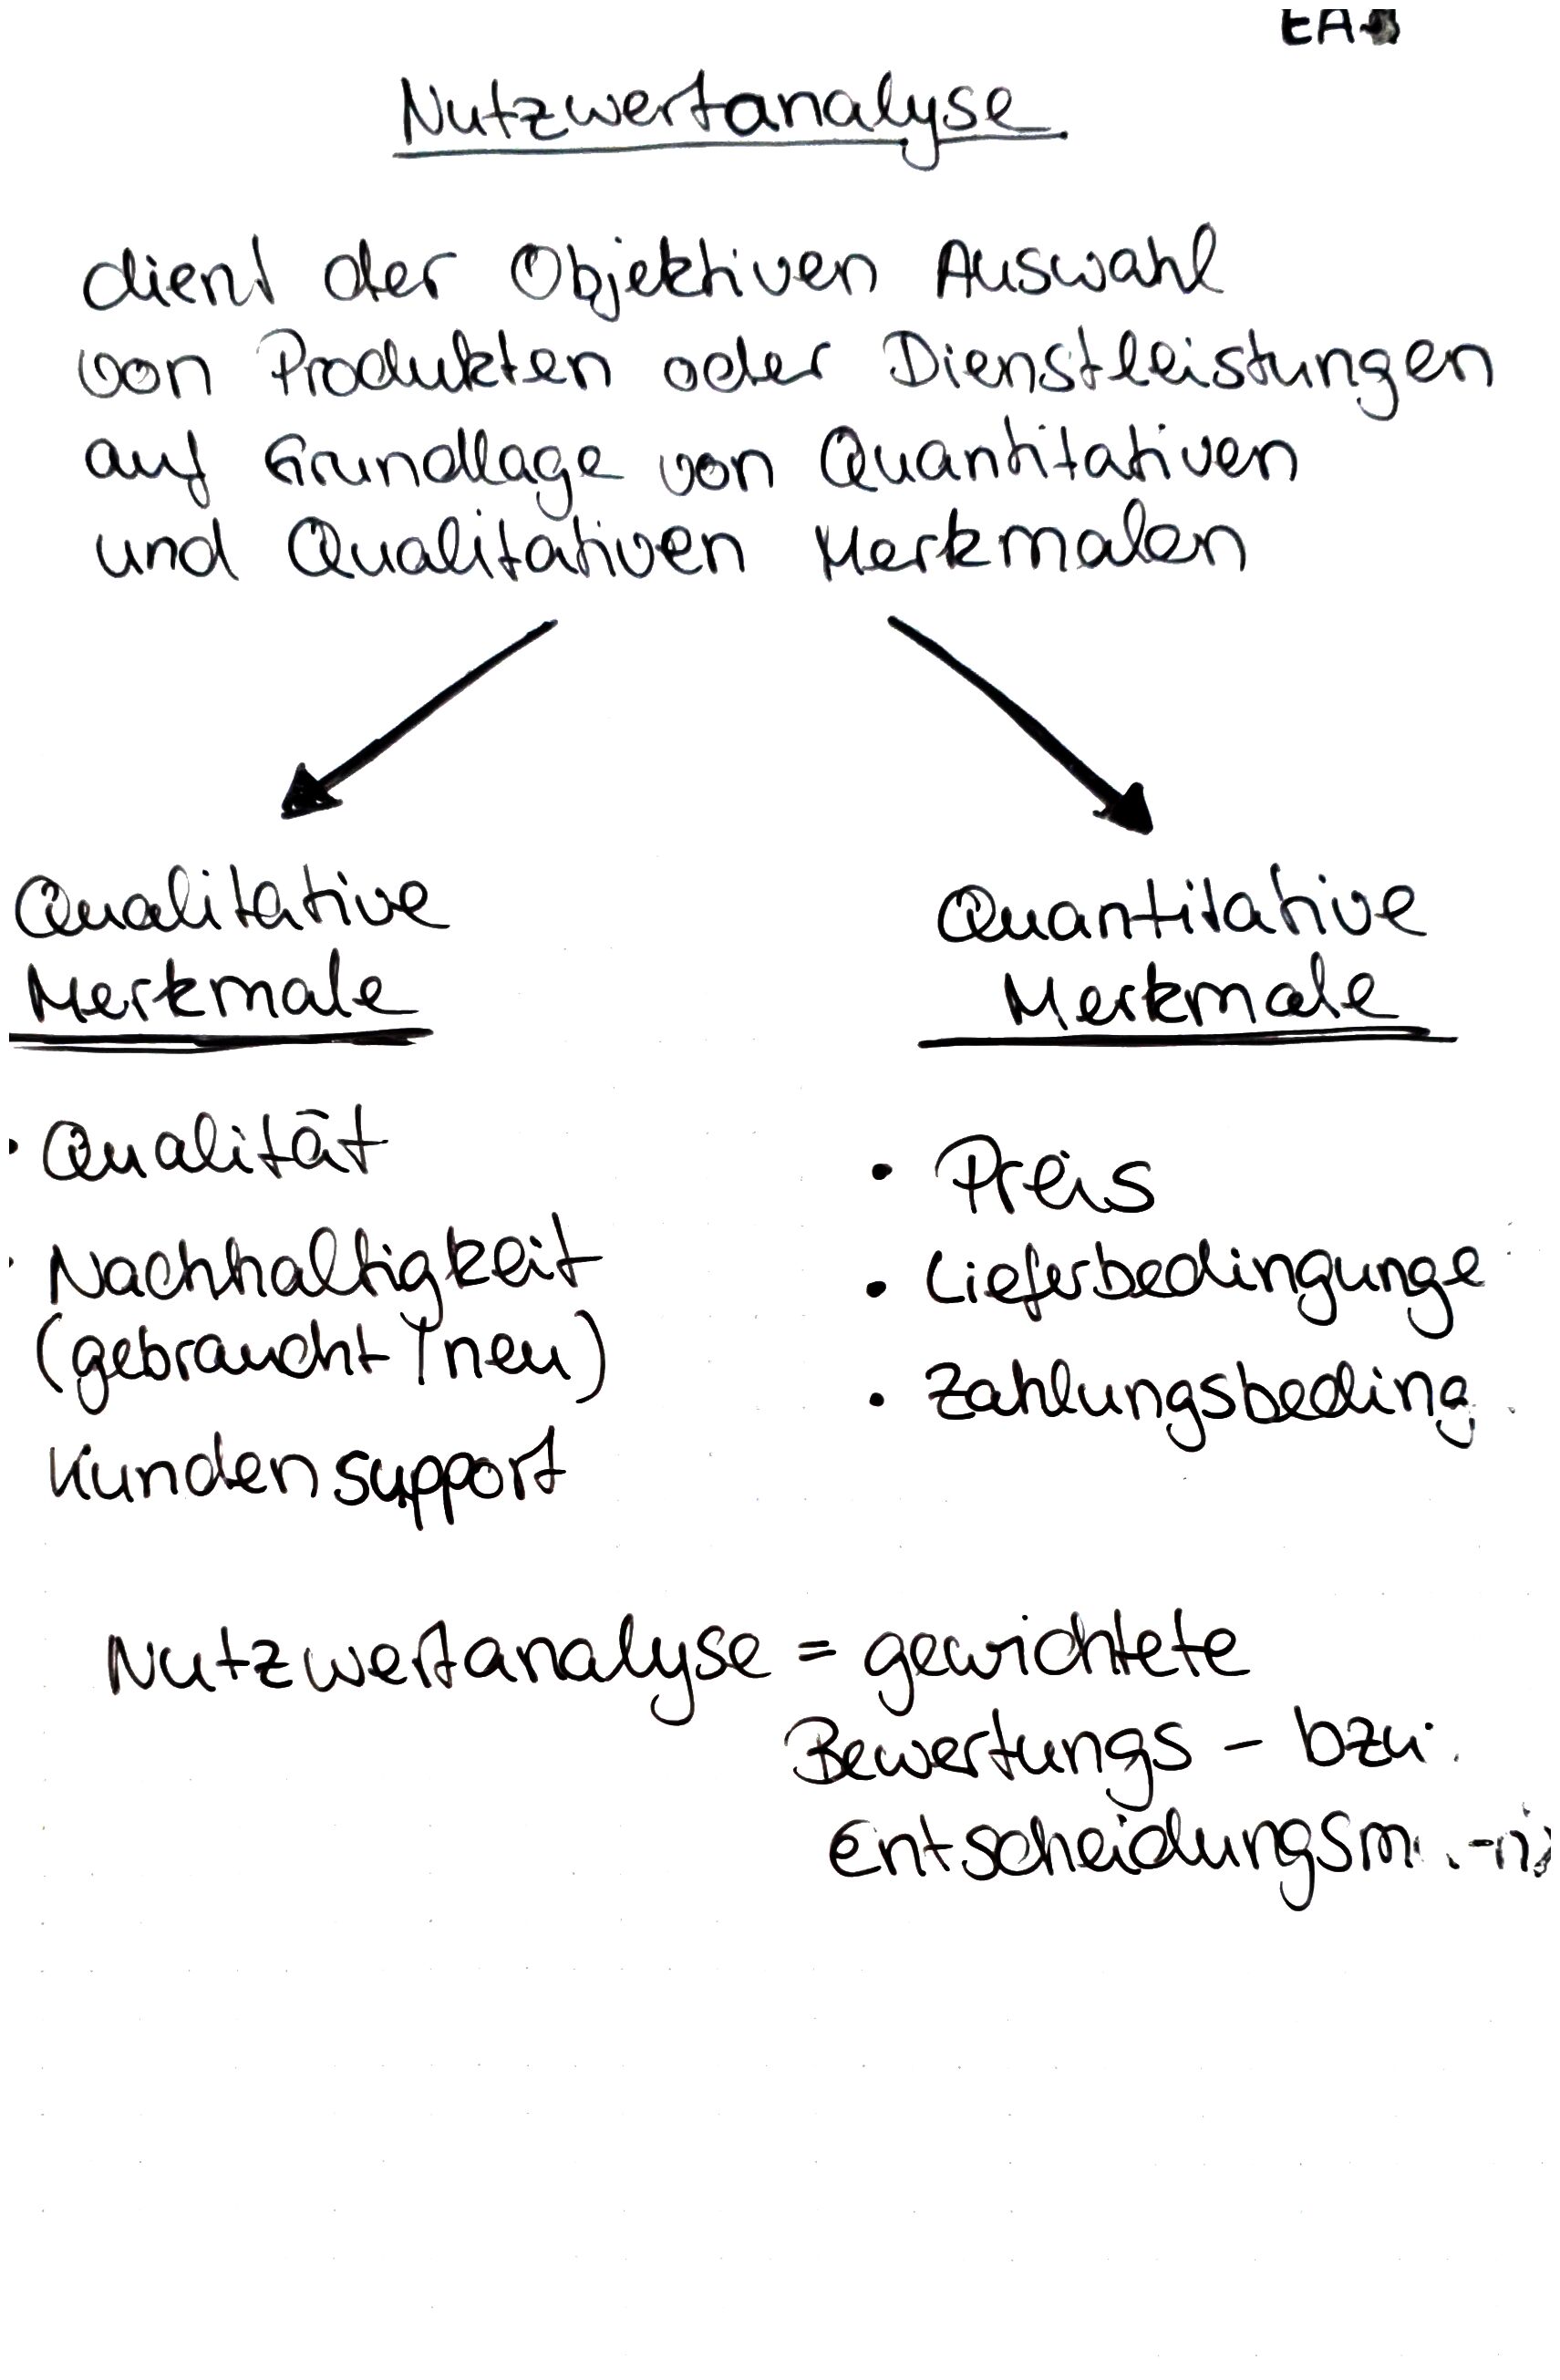 Nutzwertanalyse
dient der Objektiven Auswahl
von Produkten oder Dienstleistungen
auf Grundlage von Quantitativen
und Qualitativen Merkmalen
Qualitative
Merkmale
• Qualität
• Nachhaltigkeit
(gebraucht / neu)
Kundensupport
Quantitative
Merkmale
• Preis
• Lieferbedingunge
• Zahlungsbeding
Nutzwertanalyse = gewichtete
Bewertungs - bzw.